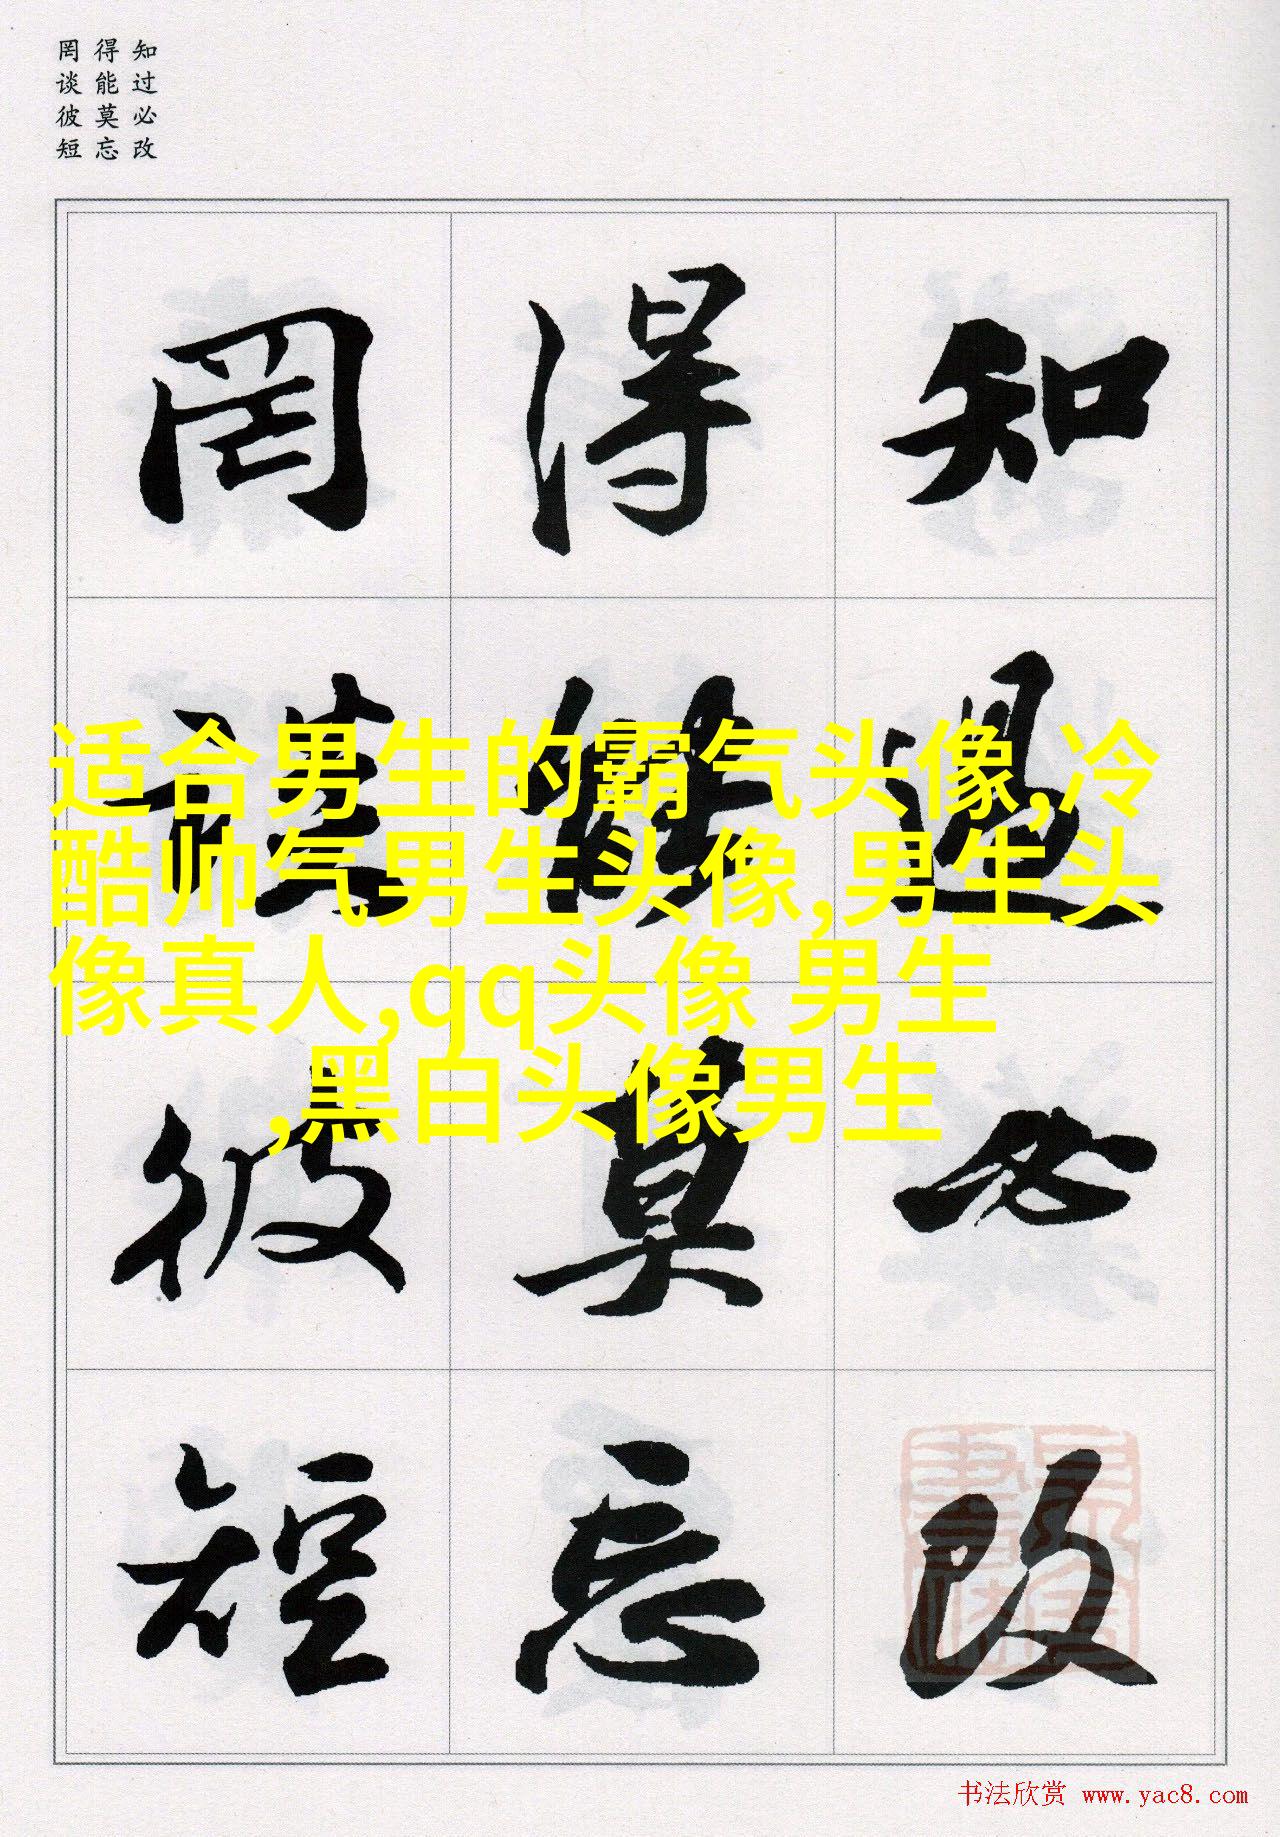 知过必改
得能莫忘
罔谈彼短
知過必改
得能莫忘
罔談彼短
适合男生的霸气头像,冷
酷帅气男生头像,男生头
像真人,qq头像 男生
,黑白头像男生
书法欣赏 www.yac8.com